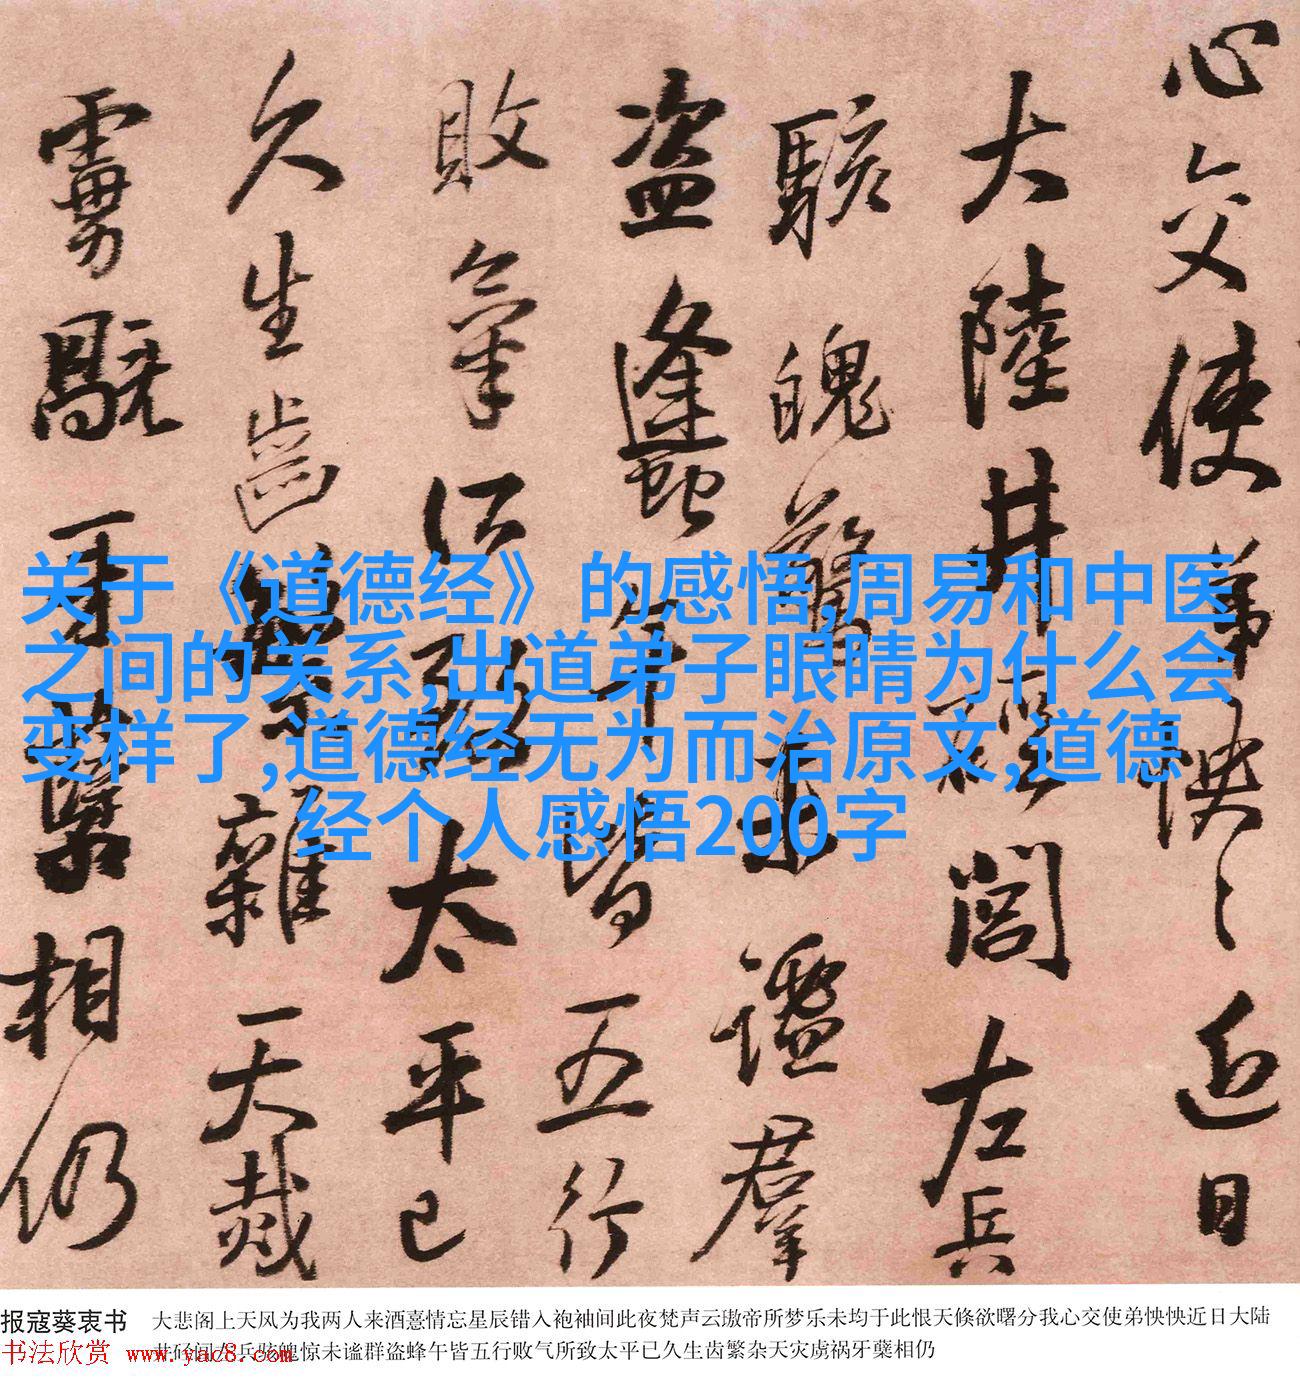 心交使弟怏々近日
大陸井閤左兵
駭魄驚未謐羣
盗蠭午皆五行
敗氣所致太平已
久生齒繁雜天烖
虜旤牙蘖相仍
关于《道德经》的感悟,周易和中医
之间的关系,出道弟子眼睛为什么会
变样了,道德经无为而治原文,道德
经个人感悟200字
报寇葵衷书 大悲阁上天风为我两人来酒憙情忘星辰错入袍袖间此夜梵声云璈帝所梦乐未均于此恨天倏欲曙分我心交使弟怏怏近日大陆
魄惊未谧群盗蜂午皆五行败气所致太平已久生齿繁杂天灾虏祸牙蘖相仍
书法欣赏 www.yac8.com